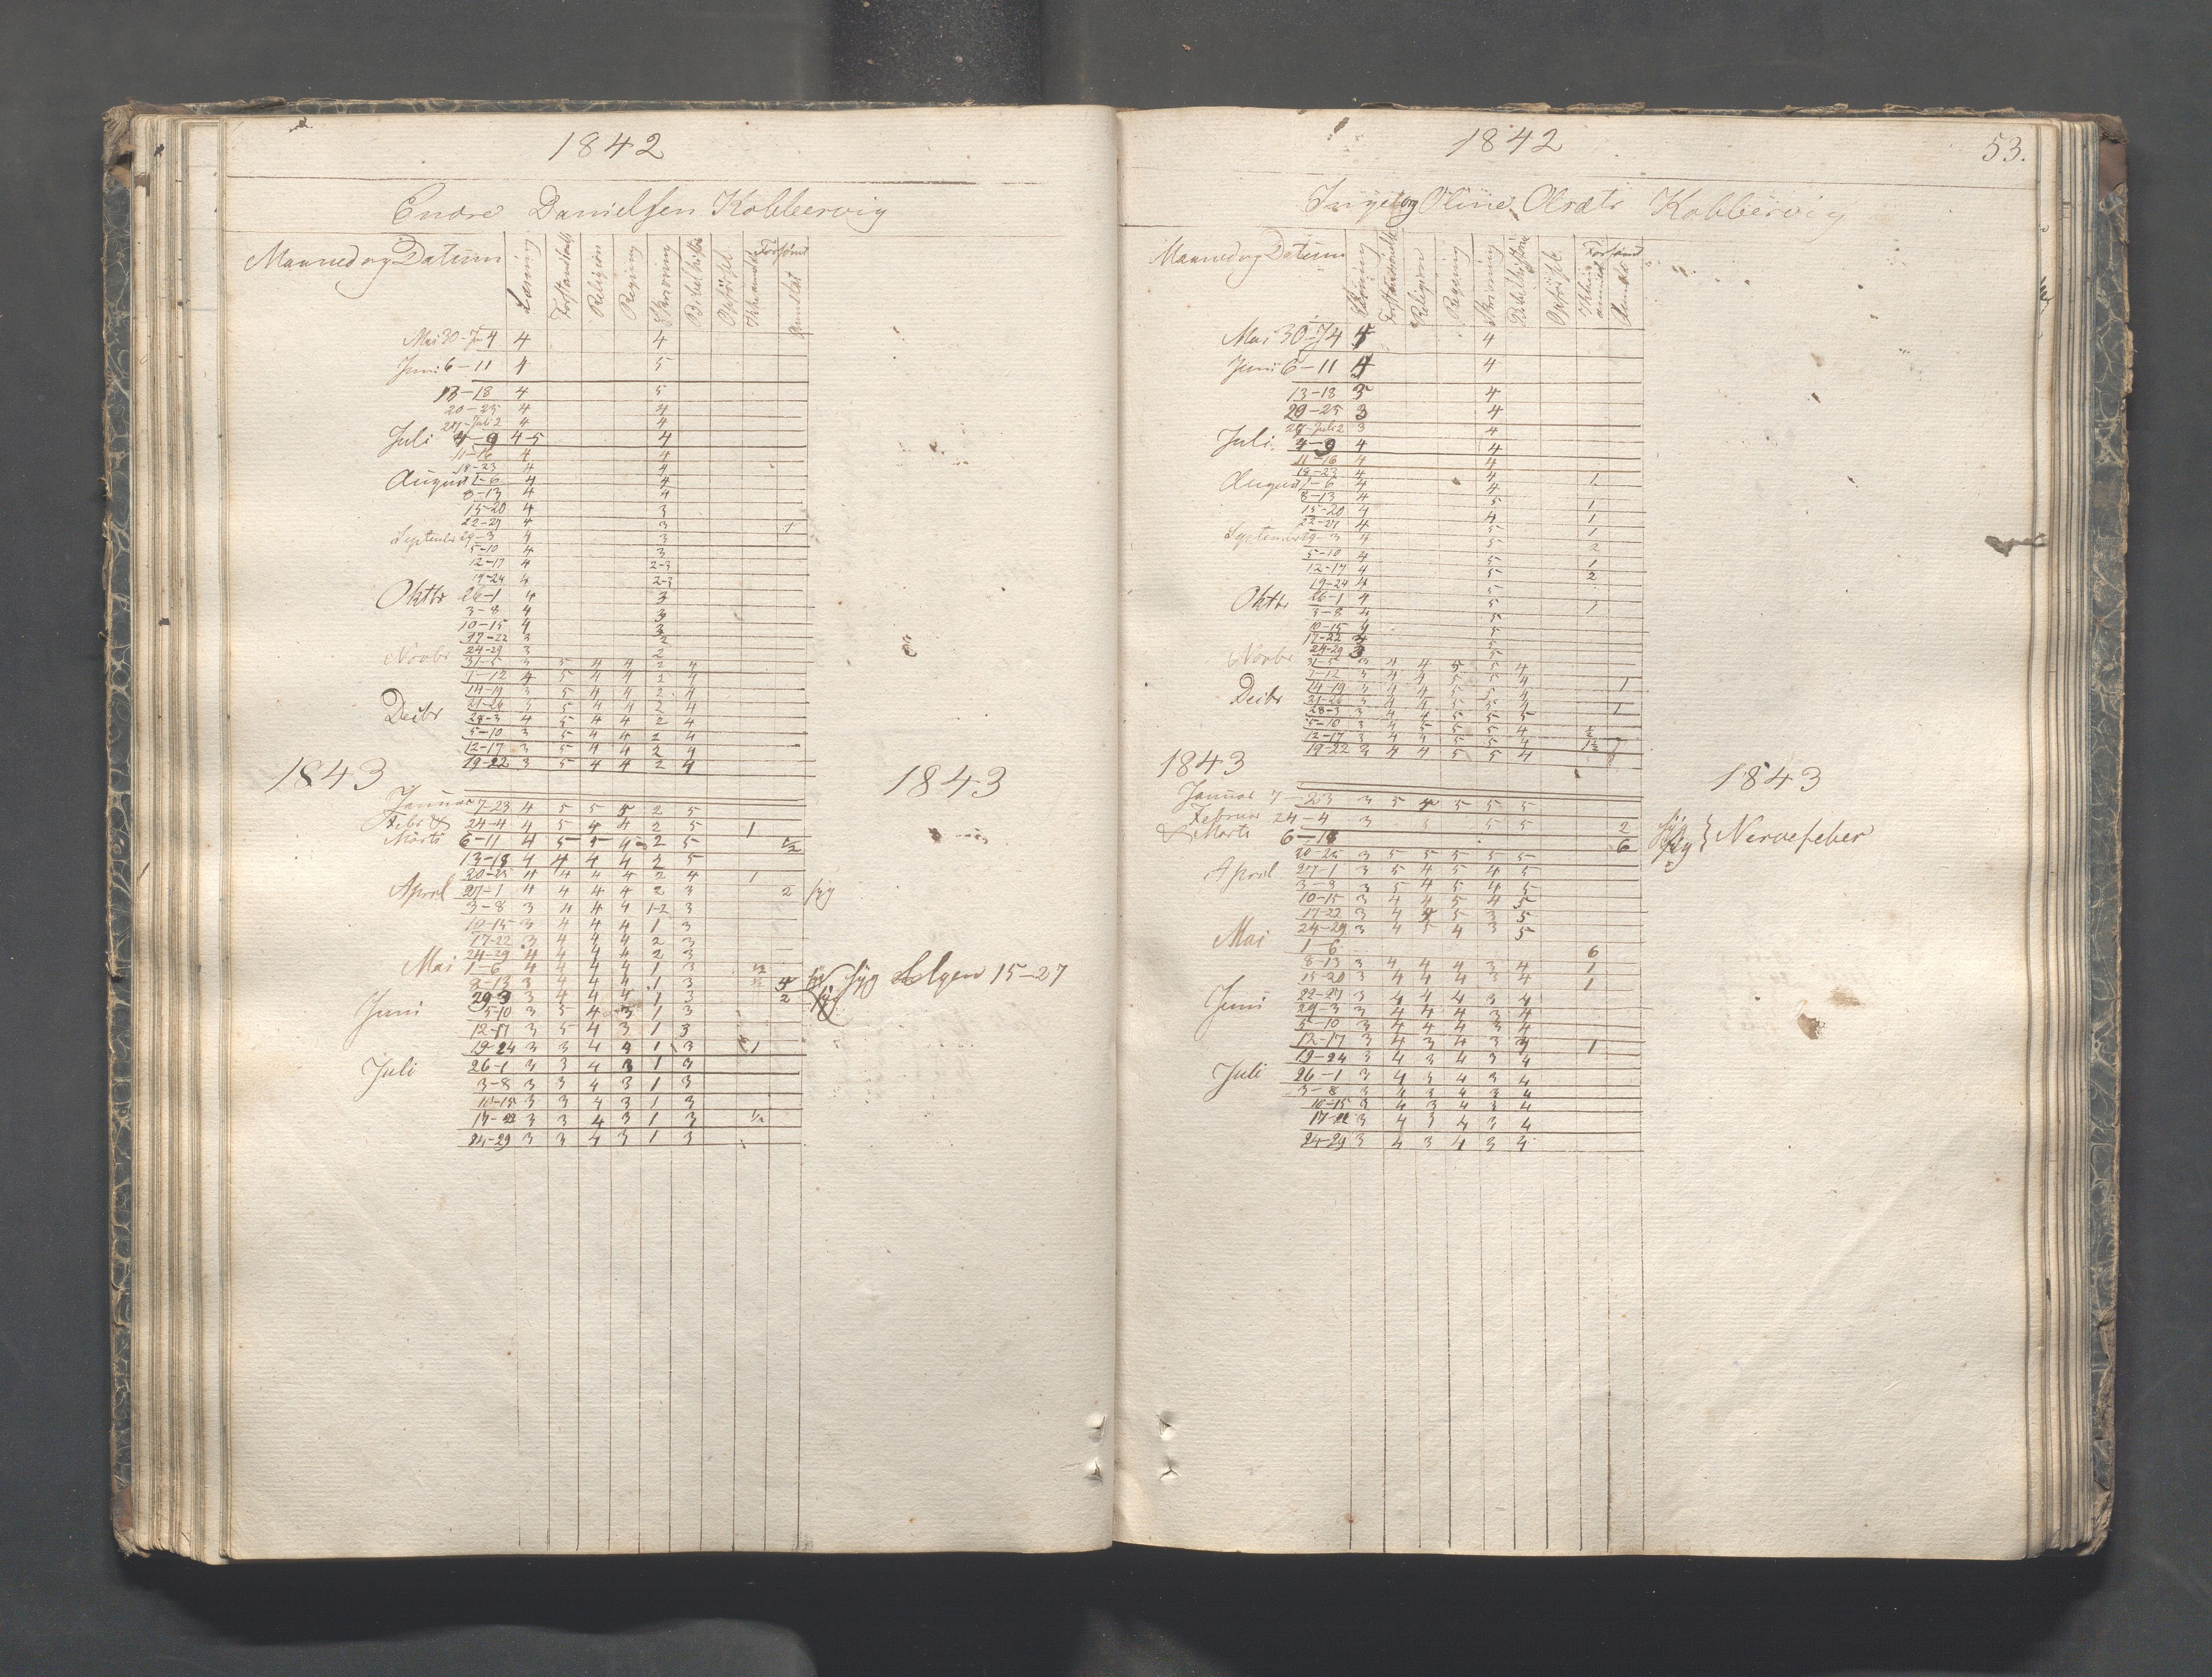 1842
Endre Danielsen Kobbervig
Maaned og Datum Læsning Forstandsøvelse Religion Regning Skrivning Bibelhistorie Opførsel Forsømt
Ikke anmeldt Anmeldt
Mai 30 - Ju 4 4 4
Juni 6-11 4 5
13-18 4 5
20-25 4 4
27-Juli 2 4 4
Juli 4-9 4-5 4
11-16 4 4
18-23 4 4
August 1-6 4 4
8-13 4 4
15-20 4 3
22-27 4 3 1
Septembr 29-3 4 3
5-10 4 3
12-17 4 2-3
19-24 4 2-3
Oktbr 26-1 4 3
3-8 4 3
10-15 4 3
17-22 3 2
24-29 3 2
Novbr 31-5 3 5 4 4 2 4
7-12 4 5 4 4 2 4
14-19 3 5 4 4 2 4
21-26 3 5 4 4 2 4
Decbr 28-3 4 5 4 4 2 4
5-10 3 5 4 4 2 4
12-17 3 5 4 4 2 4
19-22 3 5 4 4 2 4
1843 1843
Januar 7-23 4 5 5 5 2 5
Febr & 24-4 4 5 4 4 2 5 1
Marts 6-11 4 5 5 4-5 2 5 ½
13-18 4 4 4 4 2 5
20-25 4 4 4 4 2 4 1
April 27-1 4 4 4 4 2 3 2 syg
3-8 3 4 4 4 1-2 3
10-15 3 4 4 4 1 3
17-22 3 4 4 4 2 3
24-29 4 4 4 4 2 3
Mai 1-6 4 4 4 4 1 3 ½
8-13 3 4 4 4 1 3 ½ 4 syg syg 15-27
29-3 3 4 4 4 1 3 2 syg
Juni 5-10 3 5 4 3 1 3
12-17 3 5 4 3 1 3
19-24 3 3 4 3 1 3 1
Juli 26-1 3 3 4 3 1 3
3-8 3 3 4 3 1 3
10-15 3 3 4 3 1 3
17-22 3 3 4 3 1 3 ½
24-29 3 3 4 3 1 3
1842 53.
Ingeborg Oline Olsdtr Kobbervig
Maaned og Datum Læsning Forstandsøvelse Religion Regning Skrivning Bibelhistorie Opførsel Forsømt
Ikke anmeldt Anmeldt
Mai 30-J 4 5 4
Juni 6-11 4 4
13-18 3 4
20-25 3 4
27-Juli 2 3 4
Juli 4-9 4 4
11-16 4 4
18-23 4 4 1
August 1-6 4 4
8-13 4 5 1
15-20 4 4 1
22-27 4 5 1
September 29-3 4 5 2
5-10 4 5 1
12-17 4 5 2
19-24 4 5
Oktbr 26-1 4 5 1
3-8 4 5
10-15 4 5
17-22 4 5
24-29 3 5
Novbr 31-5 3 4 4 5 5 4
7-12 3 4 4 5 5 4 1
14-19 3 4 4 5 5 4
Decbr 21-26 3 4 4 5 5 4 1
28-3 3 4 4 5 5 5
5-10 3 4 5 5 5 4 ½
12-17 3 4 4 5 5 4 1½
19-22 3 4 4 5 5 4
1843 1843
Januar 7-23 3 5 4 5 5 5
Februar 24-4 3 5 5 2 syg
& Marts 6-18 6 syg } Nervefeber
20-25 3 5 5 5 5 5
April 27-1 3 5 4 5 4 5
3-8 3 5 4 5 4 5
10-15 3 4 4 5 4 5
17-22 3 4 4 5 3 5
24-29 3 4 5 4 3 5
Mai 1-6 6
8-13 3 4 4 4 3 4 1
15-20 3 4 4 4 3 4 1
22-27 3 4 4 4 3 4
Juni 29-3 3 4 4 4 3 4
5-10 3 4 4 4 3 4
12-17 3 4 3 4 3 4 1
19-24 3 4 3 4 3 4
Juli 26-1 3 4 3 4 3 4
3-8 3 4 3 4 3 4
10-15 3 4 3 4 3 4
17-22 3 4 3 4 3 4
24-29 3 4 3 4 3 4